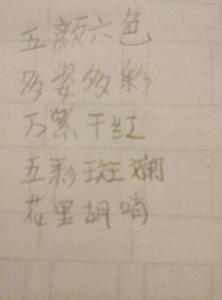 五颜六色
多姿多彩
万紫千红
五彩斑斓
花里胡哨